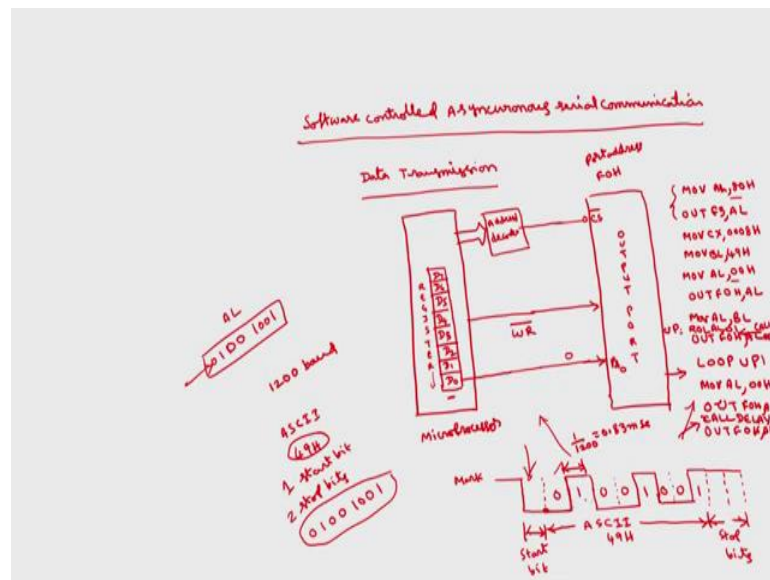 Software controlled Asyncuronous serial communication
Data Transmission
port address
F0H
address
decoder
CS
REGISTER
D7
D6
D5
D4
D3
D2
D1
D0
WR
0
PA0
OUTPUT PORT
Microprocessor
MOV AL, 80H
OUT F3, AL
MOV CX, 0008H
MOV BL, 49H
MOV AL, 00H
OUT F0H, AL
MOV AL, BL
UP1:
LOOP UP1
MOV AL, 00H
OUT F0H, A
CALL DELAY
OUT F0H, A
AL
0100 1001
1200 baud
ASCII
49H
1 start bit
2 stop bits
0100 1001
1/1200 = 0.83 mse
Mark
0 1 0 0 1 0 0 1
Start
bit
ASCII
49H
Stop
bits